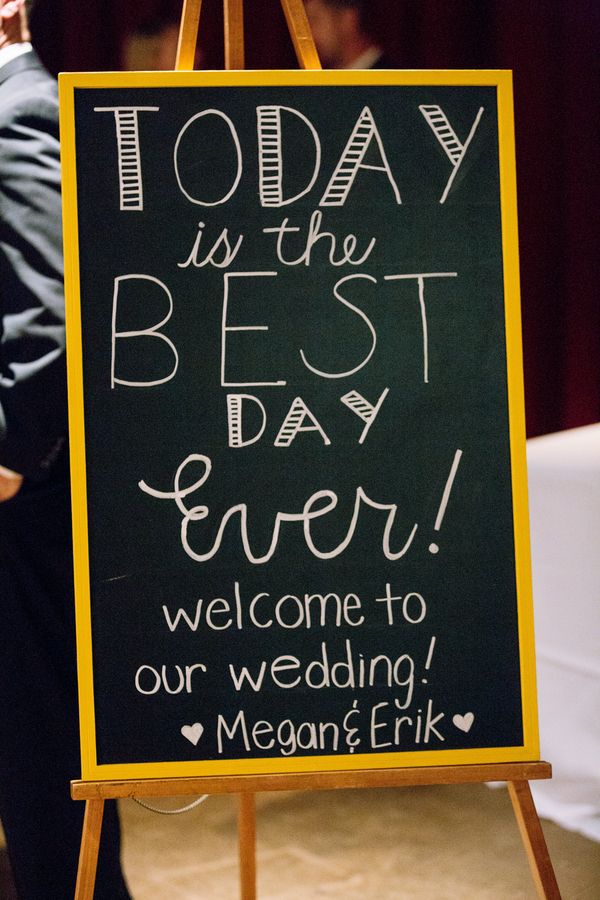 TODAY
is the
BEST
DAY
Ever!
welcome to
our wedding!
♥ Megan & Erik ♥